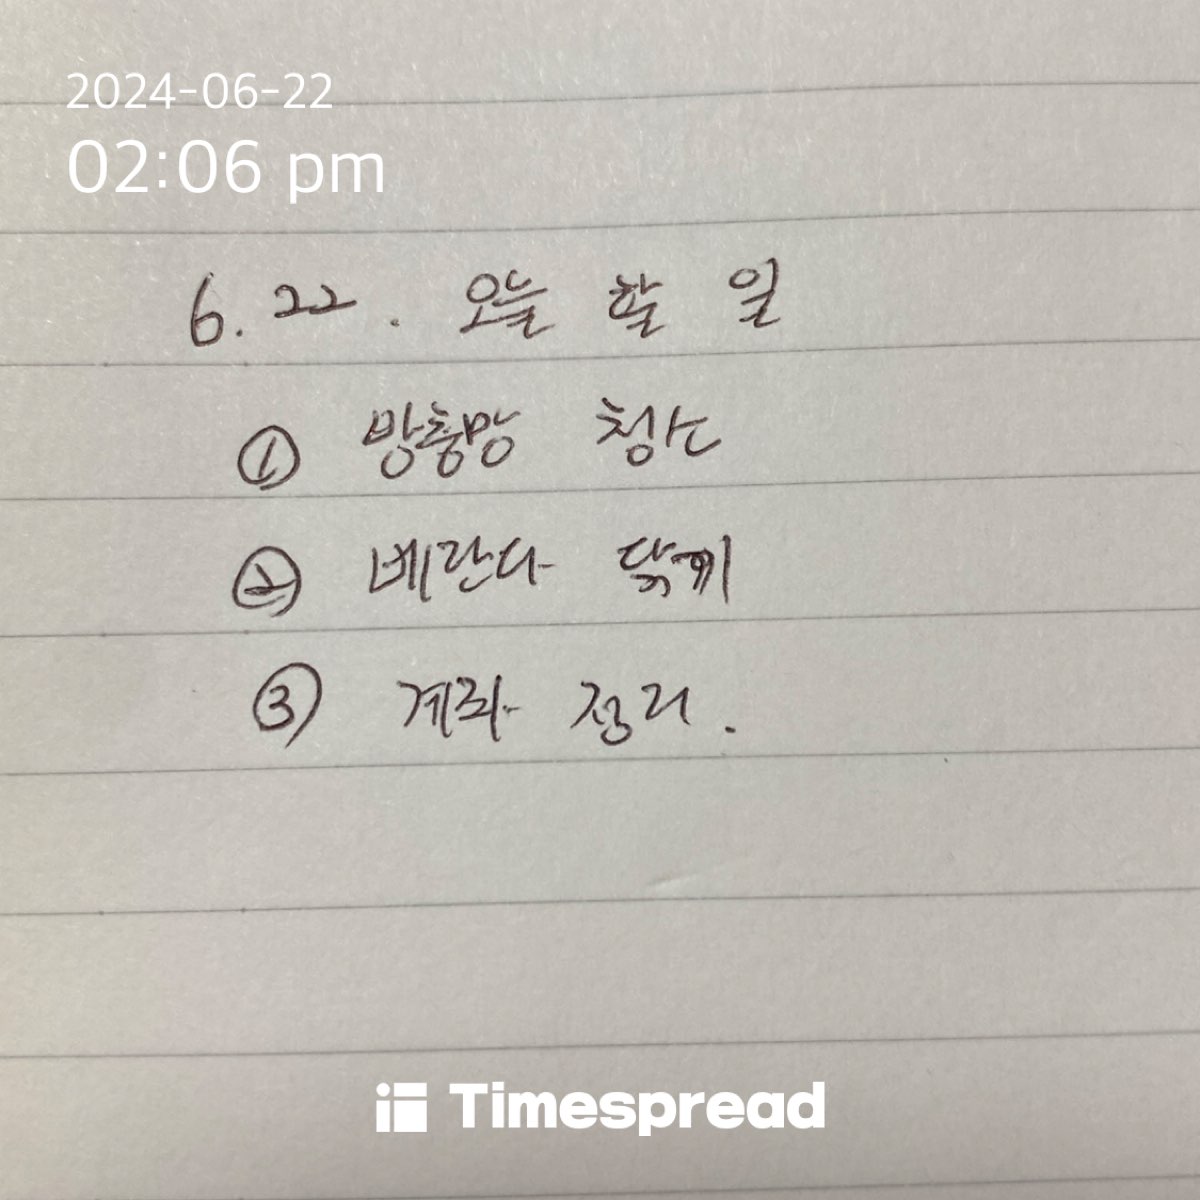 2024-06-22
02:06 pm
6. 22. 오늘 할 일
① 방충망 청소
② 베란다 닦기
③ 계좌 정리.
Timespread